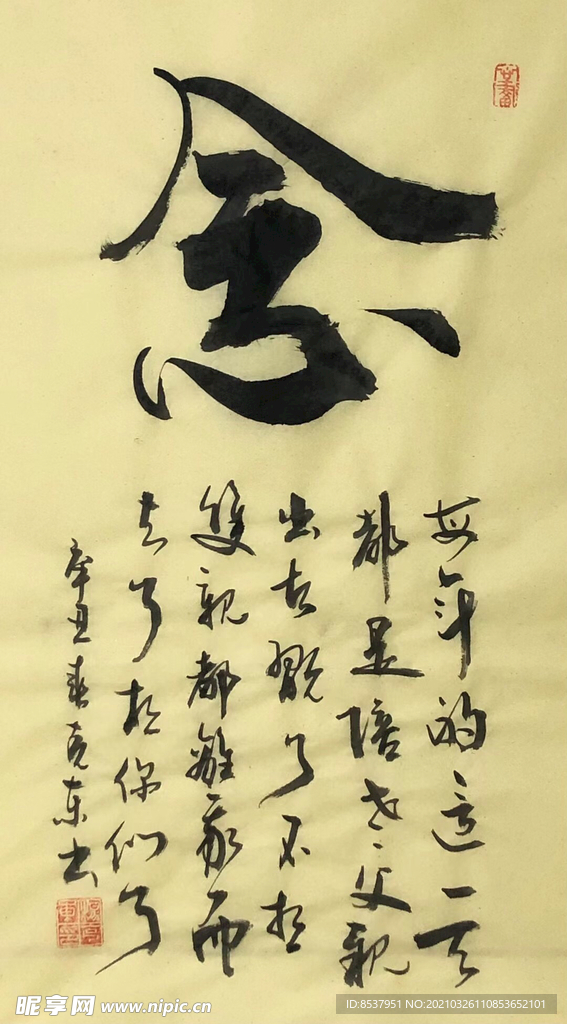 念
每年的這一天
都是陪老父親
出去翫了不想
雙親都離我而
去了想你們了
辛丑春亮东书
昵享网 www.nipic.cn
ID:8537951 NO:20210326110853652101